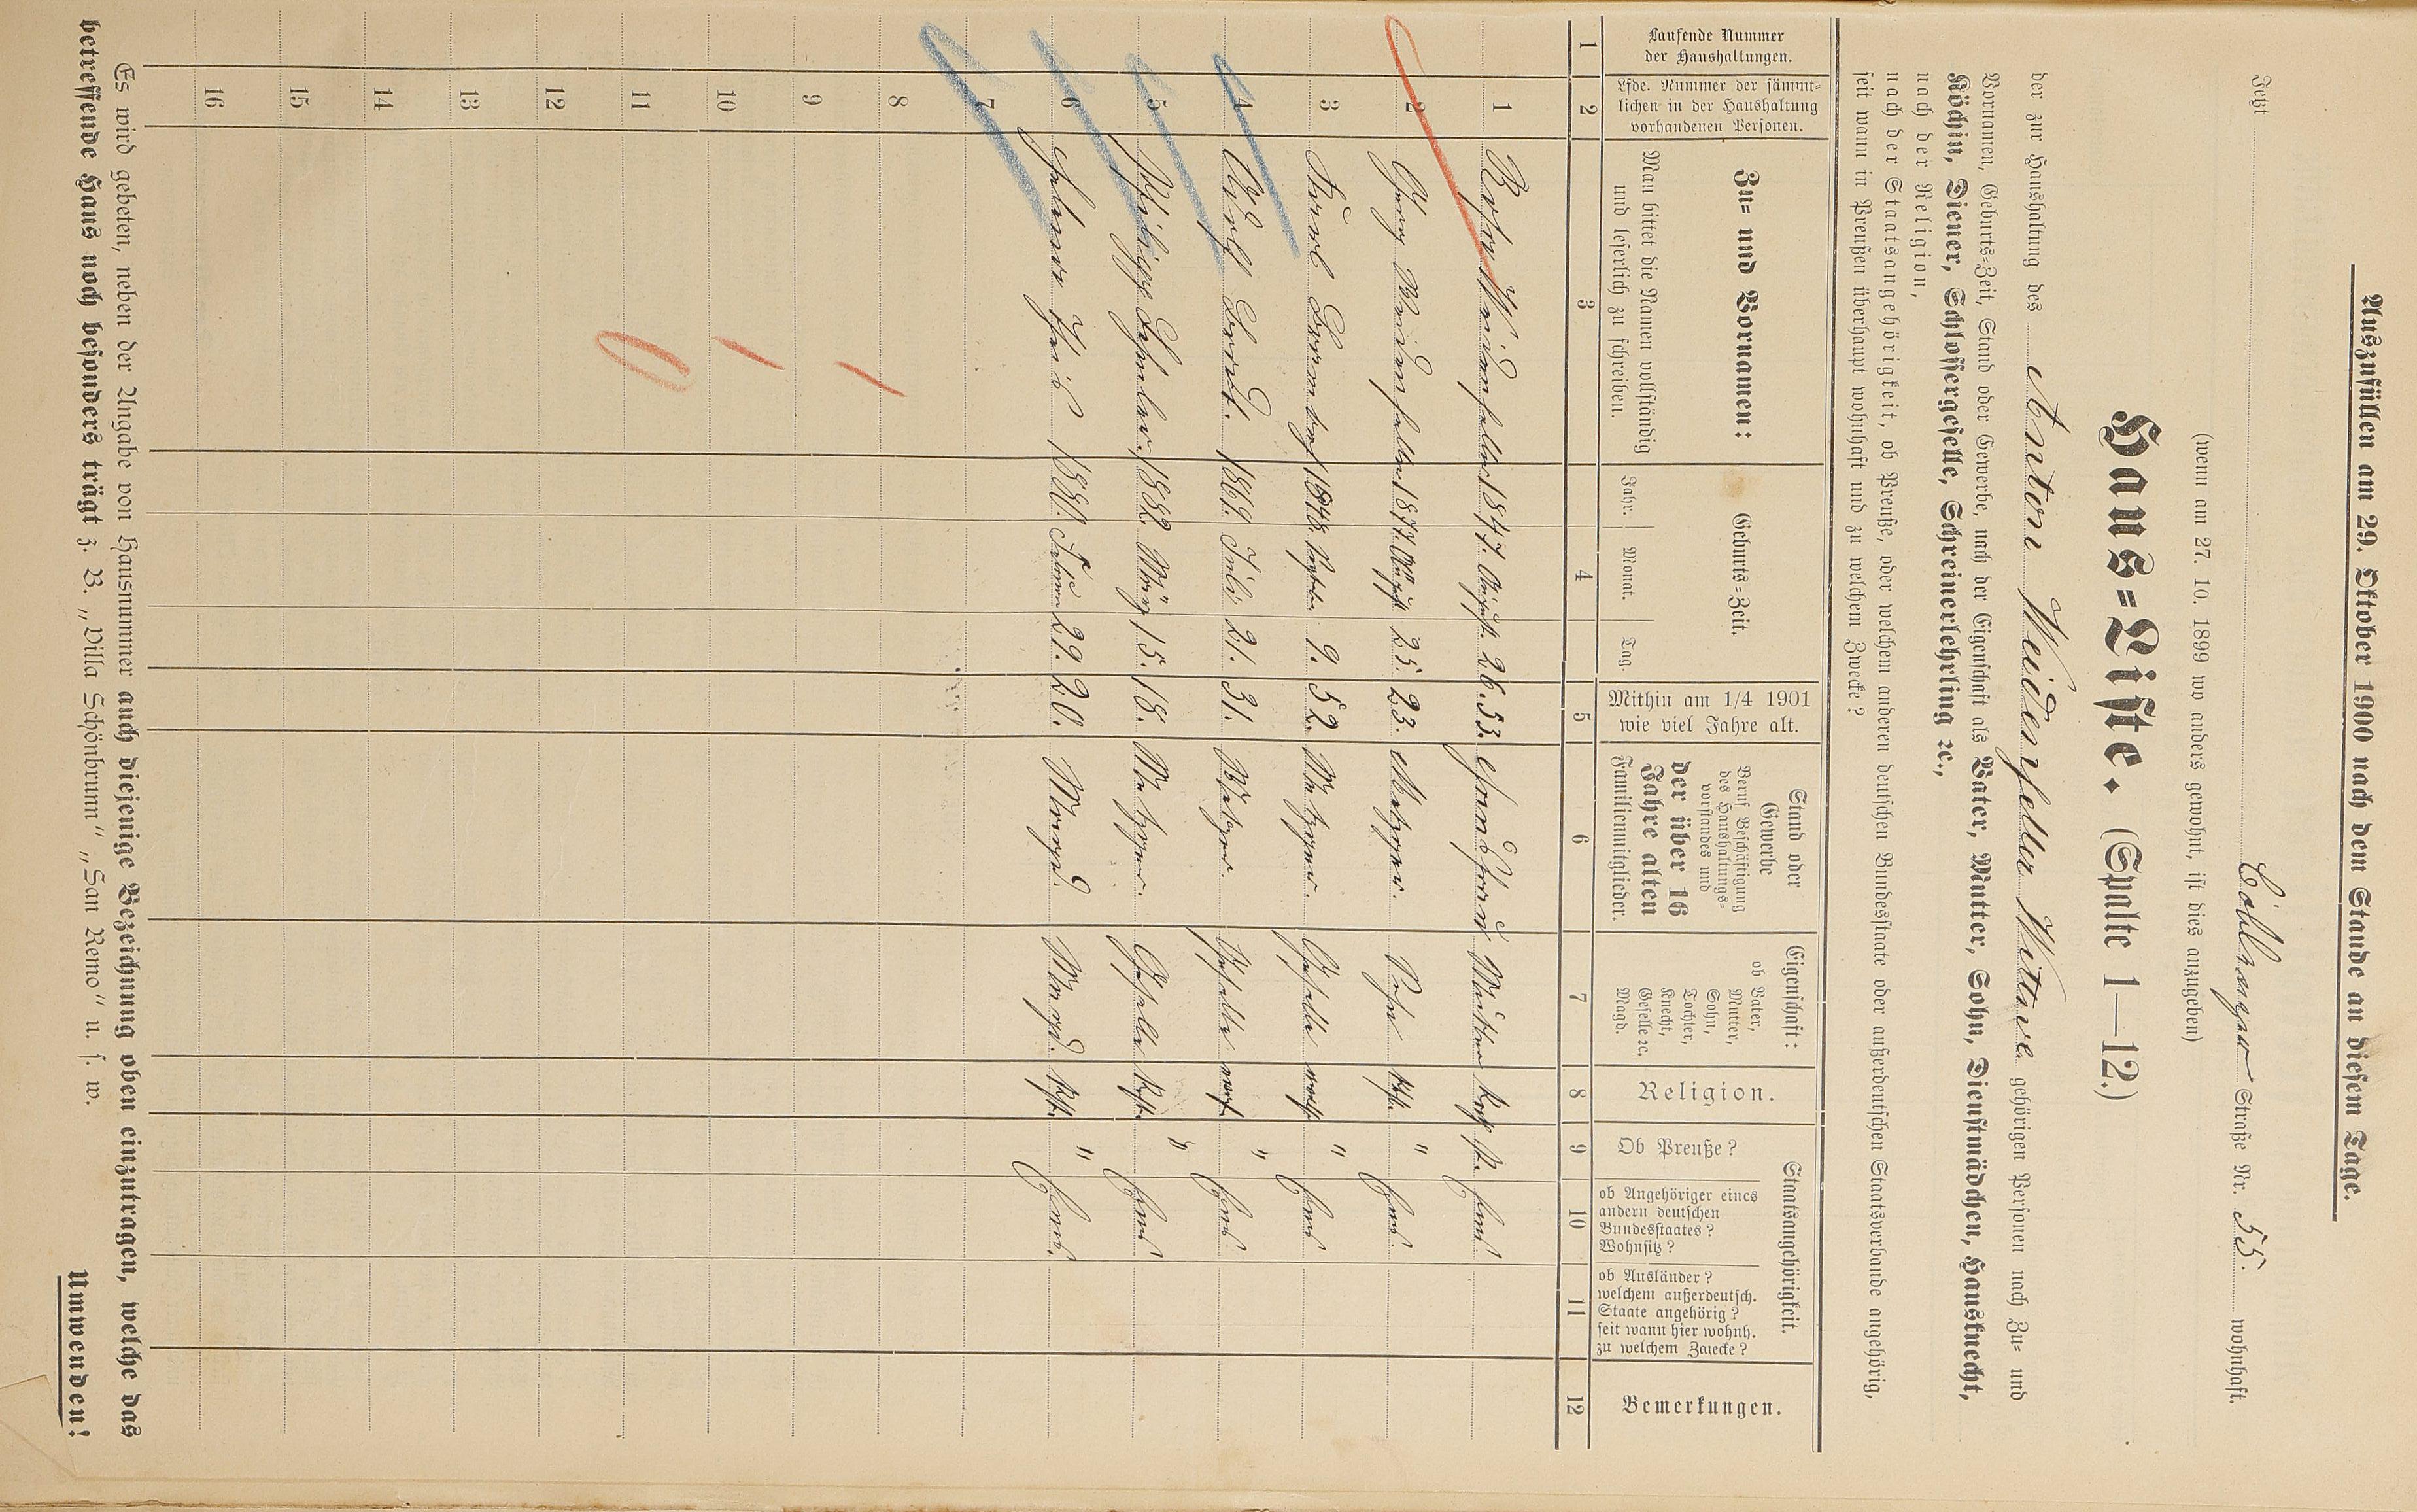 Auszufüllen am 29. Oktober 1900 nach dem Stande an diesem Tage.
Jetzt Coblenzer Straße Nr. 55 wohnhaft.
(wenn am 27. 10. 1899 wo anders gewohnt, ist dies anzugeben)
Haus-Liste. (Spalte 1—12.)
der zur Haushaltung des Anton Weidenfeller Wittwe gehörigen Personen nach Zu- und
Vornamen, Geburts-Zeit, Stand oder Gewerbe, nach der Eigenschaft als Vater, Mutter, Sohn, Dienstmädchen, Hausknecht,
Köchin, Diener, Schlossergeselle, Schreinerlehrling ꝛc.,
nach der Religion,
nach der Staatsangehörigkeit, ob Preuße, oder welchem anderen deutschen Bundesstaate oder außerdeutschen Staatsverbande angehörig,
seit wann in Preußen überhaupt wohnhaft und zu welchem Zwecke?
Laufende Nummer
der Haushaltungen.
Lfde. Nummer der sämmt-
lichen in der Haushaltung
vorhandenen Personen.
Zu- und Vornamen:
Man bittet die Namen vollständig
und leserlich zu schreiben.
Geburts-Zeit.
Jahr. Monat. Tag.
Mithin am 1/4 1901
wie viel Jahre alt.
Stand oder
Gewerbe
Beruf Beschäftigung
des Haushaltungs-
vorstandes und
der über 16
Jahre alten
Familienmitglieder.
Eigenschaft:
ob Vater,
Mutter,
Sohn,
Tochter,
Knecht,
Geselle ꝛc.
Magd.
Religion.
Staatsangehörigkeit.
Ob Preuße?
ob Angehöriger eines
andern deutschen
Bundesstaates?
Wohnsitz?
ob Ausländer?
welchem außerdeutsch.
Staate angehörig?
seit wann hier wohnh.
zu welchem Zwecke?
Bemerkungen.
1 2 3 4 5 6 7 8 9 10 11 12
1 Weidenfeller 1847. August. 26. 53. Mutter kath. Ems
2 Georg Weidenfeller 1877. August 25. 23. Metzger. Sohn kath. " Ems
3 1848. Septbr. 9. 52. Metzger. Geselle " Ems
4 1869. Juli 21. 31. Metzger. Geselle " Ems
5 1882. März 15. 18. Metzger. Geselle kath. " Ems
6 1880. 29. 20. Magd. Magd. kath. " Ems.
7
8
9
10
11
12
13
14
15
16
Es wird gebeten, neben der Angabe von Hausnummer auch diejenige Bezeichnung oben einzutragen, welche das
betreffende Haus noch besonders trägt z. B. „Villa Schönbrunn“ „San Remo“ u. s. w.
Umwenden!